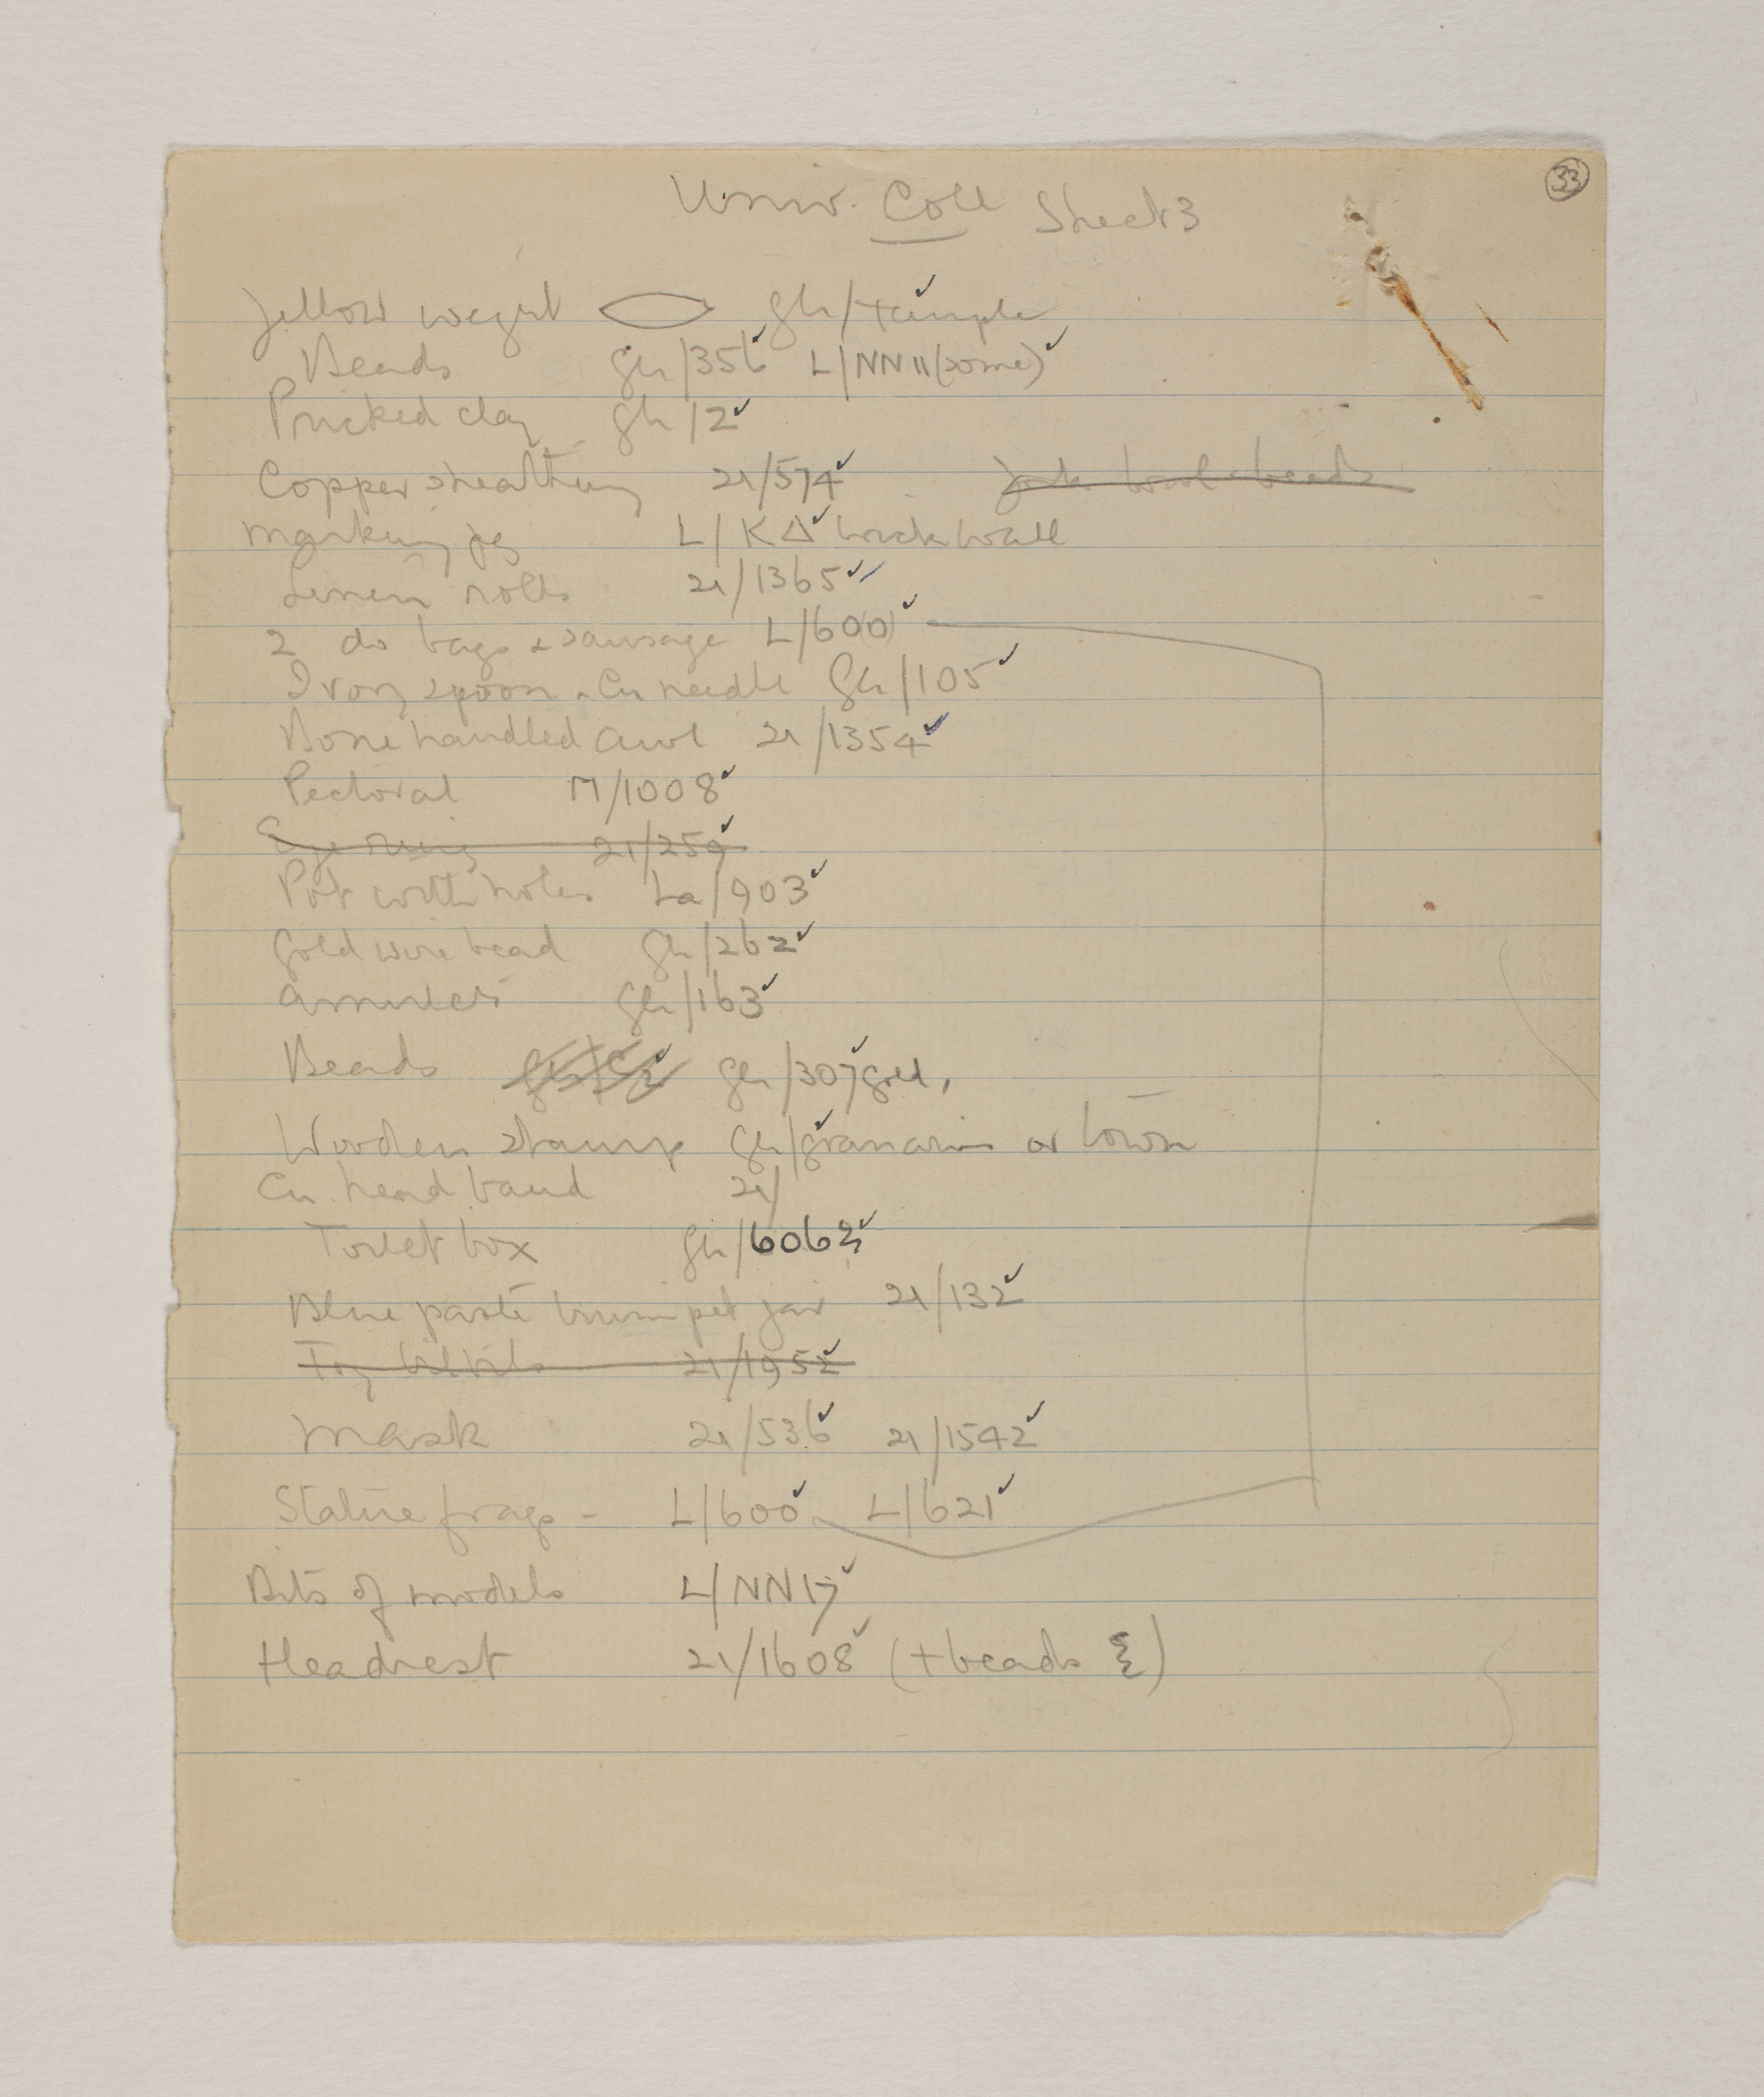 33
Univ. Coll Sheet 3
Yellow weight gh/temple ✓
Beads gh/356 ✓ L/NN11 (some) ✓
Pricked clay gh/2 ✓
Copper sheathing 21/574 ✓ bowl beads
Marking peg L/KΔ ✓ brick wall
Linen rolls 21/1365 ✓
2 do bags & sausage L/600 ✓
Ivory spoon & Cu needle gh/105 ✓
Bone handled awl 21/1354 ✓
Pectoral M/1008 ✓
21/259 ✓
Pot with holes La/903 ✓
Gold wire bead gh/262 ✓
Amulets gh/163 ✓
Beads gh/307 ✓ gold,
Wooden stamp gh/granaries ✓ or town
Cu. head band 21/
Toilet box gh/6063 ✓
Blue paste trumpet jar 21/132 ✓
Toy 21/1952 ✓
Mask 21/536 ✓ 21/1542 ✓
Statue frags - L/600 ✓ L/621 ✓
Bits of models L/NN17 ✓
Headrest 21/1608 ✓ (+ beads)